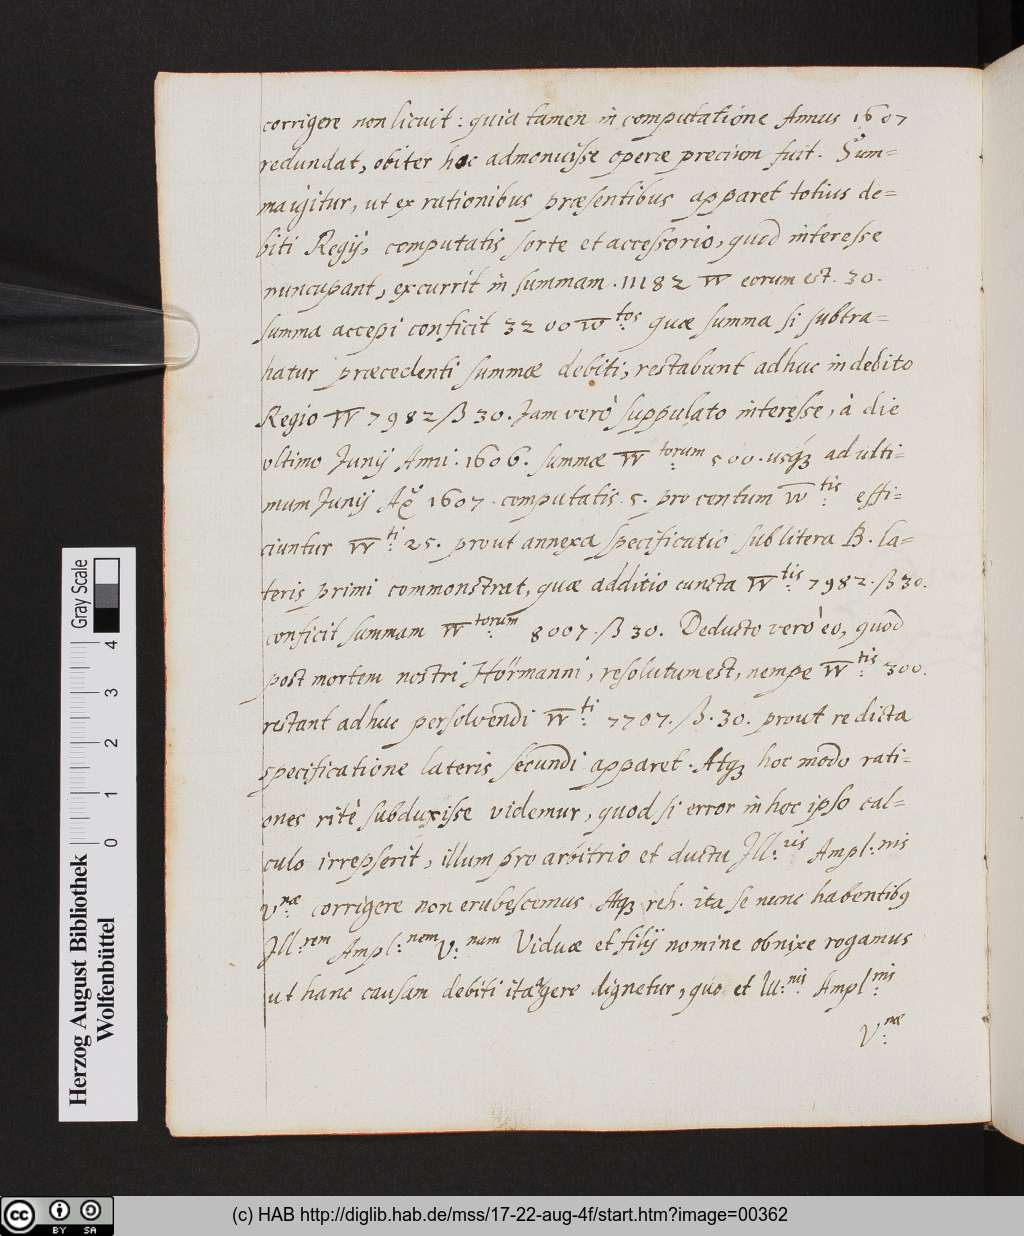 corrigere non licuit: quia tamen in computatióne Annus 1607
redundat, obiter hoc admonuisse operæ precium fuit. Sum=
ma igitur, ut ex rationibus præsentibus apparet totius de=
biti Regij, computatis sorte et accessorio, quod interesse
nuncupant, excurrit in summam. 11182 W eorum est. 30.
summa accepi conficit 3200 W tos quæ summa si subtra=
hatur præcedenti summæ debiti, restabunt adhuc in debito
Regio W 7982 ß 30. Jam verò suppulato interesse, à die
ultimo Junij Anni. 1606. summæ W torum 500. usq3 ad ulti=
mum Junij Aō 1607. computatis. 5. pro centum W tis effi=
ciuntur W ti 25. prout annexa specificatio sub litera B. la=
teris primi commonstrat, quæ additio cuncta W tis 7982. ß 30.
conficit summam W torum 8007. ß 30. Deducto verò eo, quod
post mortem nostri Hörmanni, resolutum est, nempe W tis 300.
restant adhuc persolvendi W ti 7707. ß. 30. prout re dicta
specificatione lateris secundi apparet. Atq3 hoc modo rati=
ones ritè subduxisse videmur, quod si error in hoc ipso cal=
culo irrepserit, illum pro arbitrio et ductu Ill: ris Ampl: nis
V: næ corrigere non erubescimus Atq3 reb. ita se nunc habentib9
Ill: rem Ampl: nem V: nam Viduæ et filij nomine obnixe rogamus
ut hanc causam debiti ita agere dignetur, quo et Ill: nis Ampl: nis
V: næ
Herzog August Bibliothek
Wolfenbüttel
Gray Scale
0 1 2 3 4
cc BY SA
(c) HAB http://diglib.hab.de/mss/17-22-aug-4f/start.htm?image=00362